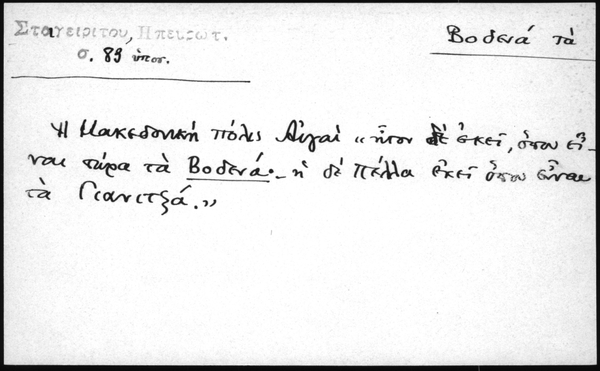 Σταγειρίτου, Ηπειρωτ.
σ. 89 ὑποσ.
Βοδενά τὰ
Ἡ Μακεδονική πόλις Αἰγαί «ἦτον ἐκεῖ, ὅπου εἶ-
ναι τώρα τὰ Βοδενά· ἡ δέ Πέλλα ἐκεῖ ὅπου εἶναι
τὰ Γιανιτζά.»